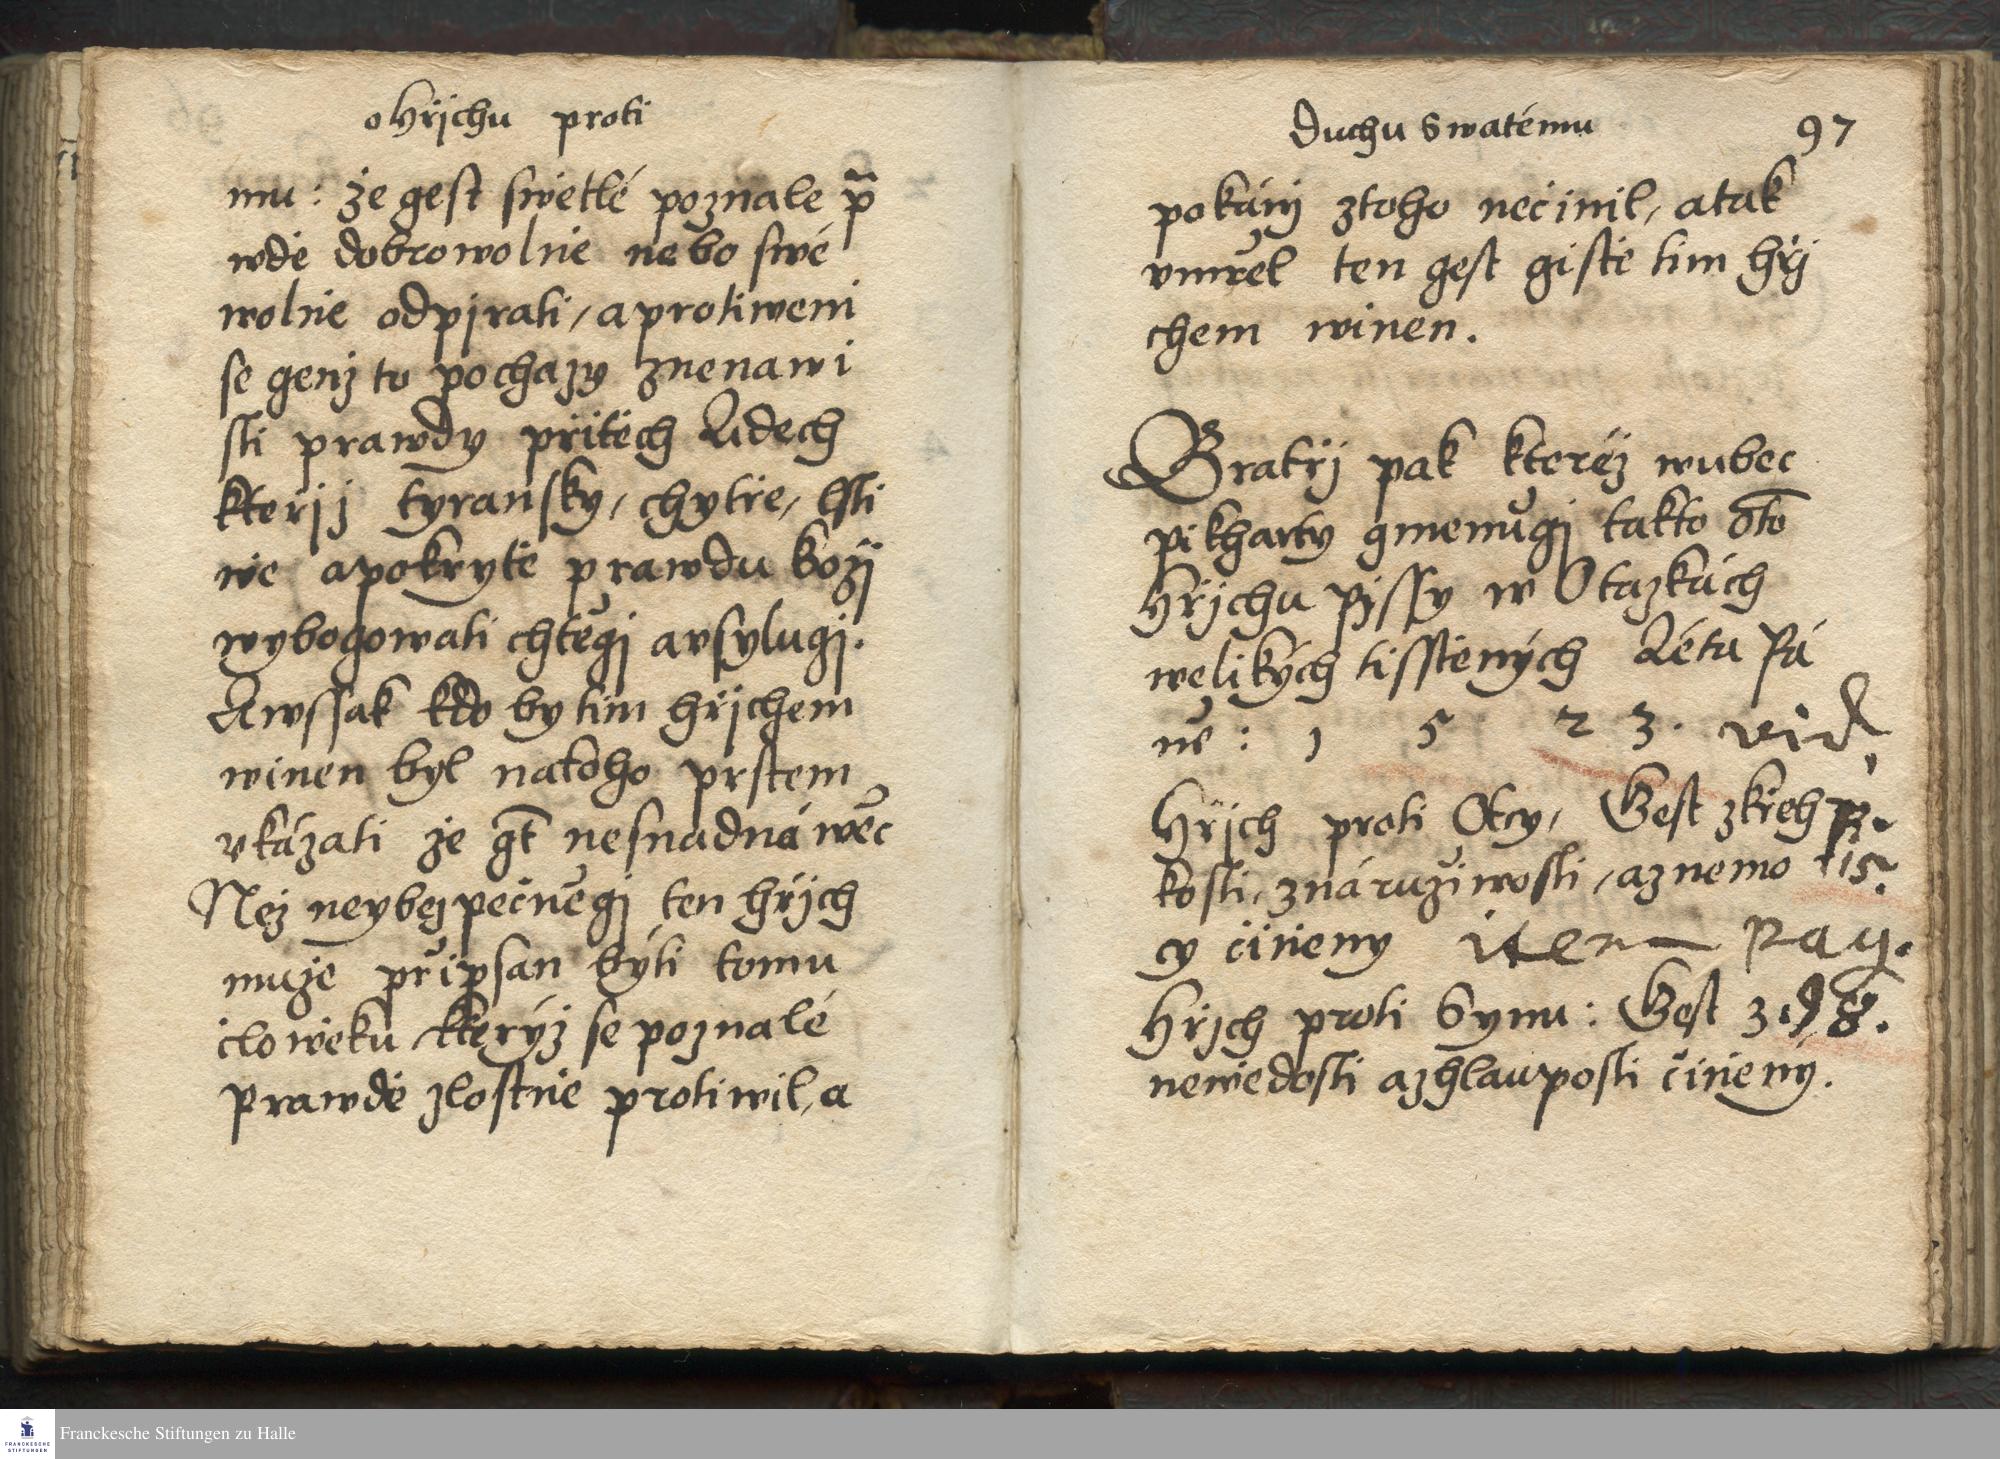 o Hřjchu proti
mu: že gest swětlé poznale p̃
wdě dobrowolnie nebo swé
wolnie odpjrati, a protiweni
se genž to pochazy znenawi
sti prawdy přitěch Lidech
kteřjž tyransky, chytře, lsti
wě apokrytě prawdu božj
wybogowati chtěgj avsylugj.
Awssak kdo by tim hřjchem
winen byl natoho prstem
vkázati že g̃t nesnadná wěc
Než neybezpečněgj ten hřjch
muže připsan býti tomu
člowěku kterýž se poznalé
Prawdě zlostnie protiwil, a
Duchu Swatému 97
pokánj ztoho nečinil, atak
vmřel ten gest gistě tim hřj
chem winen.
Bratřj pak kteréž wubec
pikharty gmenugj takto õto
Hřjchu pjssy w Otazkách
welikých tisstěných Létu Pá
ně: 1 5 2 3. vid,
Hřjch proti Otcy, Gest zkřeh
kosti, znáružiwosti, aznemo 15.
cy činěny item Pag.
Hřjch proti Synu: Gest z 98.
newědosti azhlauposti činěný.